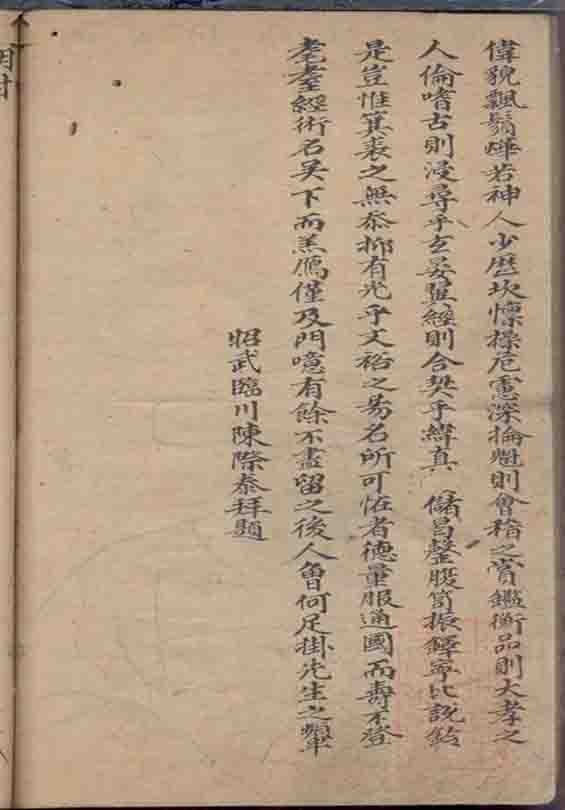 偉貌飄鬚燁若神人少歷坎懍操危慮深掄魁則會稽之賞鑑衡品則大孝之
人倫嗜古則浸尋乎玄晏翼經則合契乎緯真儲昌鏧股笥振鐸寧比說鈴
是豈惟箕裘之無忝抑有光乎文裕之易名所可怪者德量服通國而壽不登
耄耋經術名吳下而羔鴈僅及門噫有餘不盡留之後人會何足掛先生之顰
昭武臨川陳際泰拜題